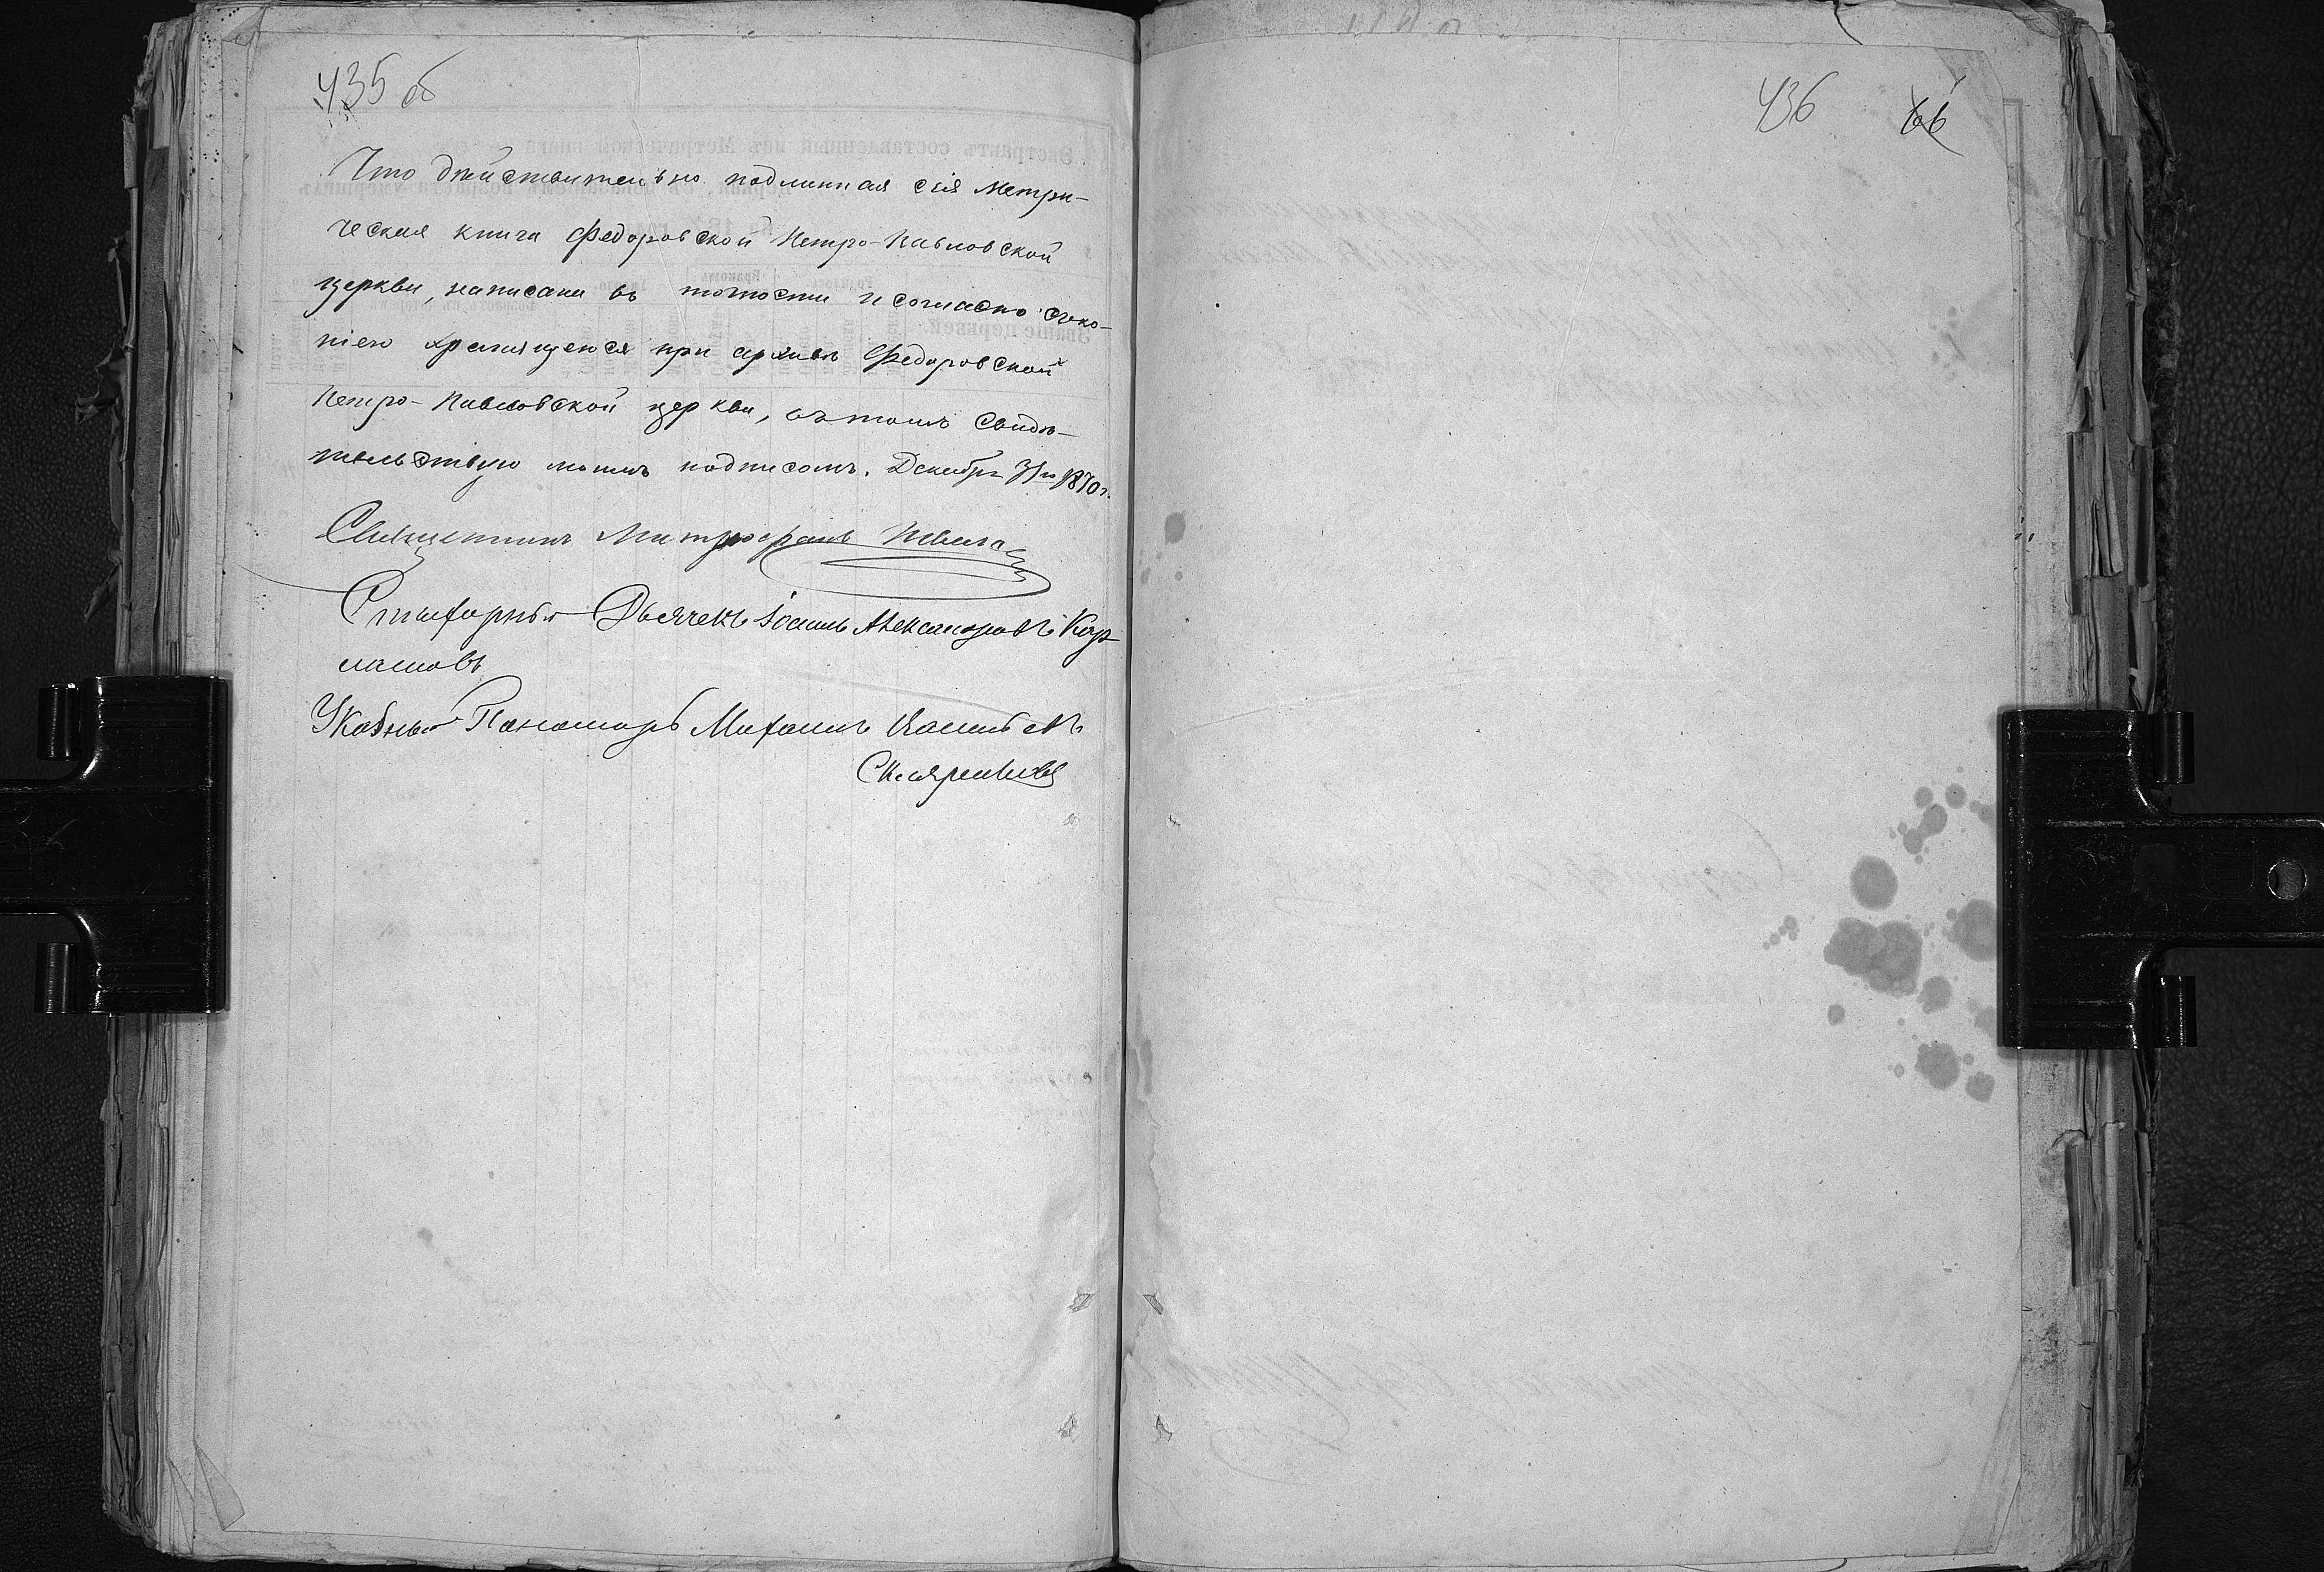 435 об
Что дѣйствительно подлинная сія Метри-
ческая книга Федоровской Петро-Павловской
церкви, написана въ точности и согласно съ ко-
піею хранящеюся при архивѣ Федоровской
Петро-Павловской церкви, въ томъ свидѣ-
тельствую моимъ подписомъ. Декабря 31го 1870 г.
Священникъ Митрофанъ
Дьячекъ Александровъ
Указный Пономарь Михаилъ
436 66